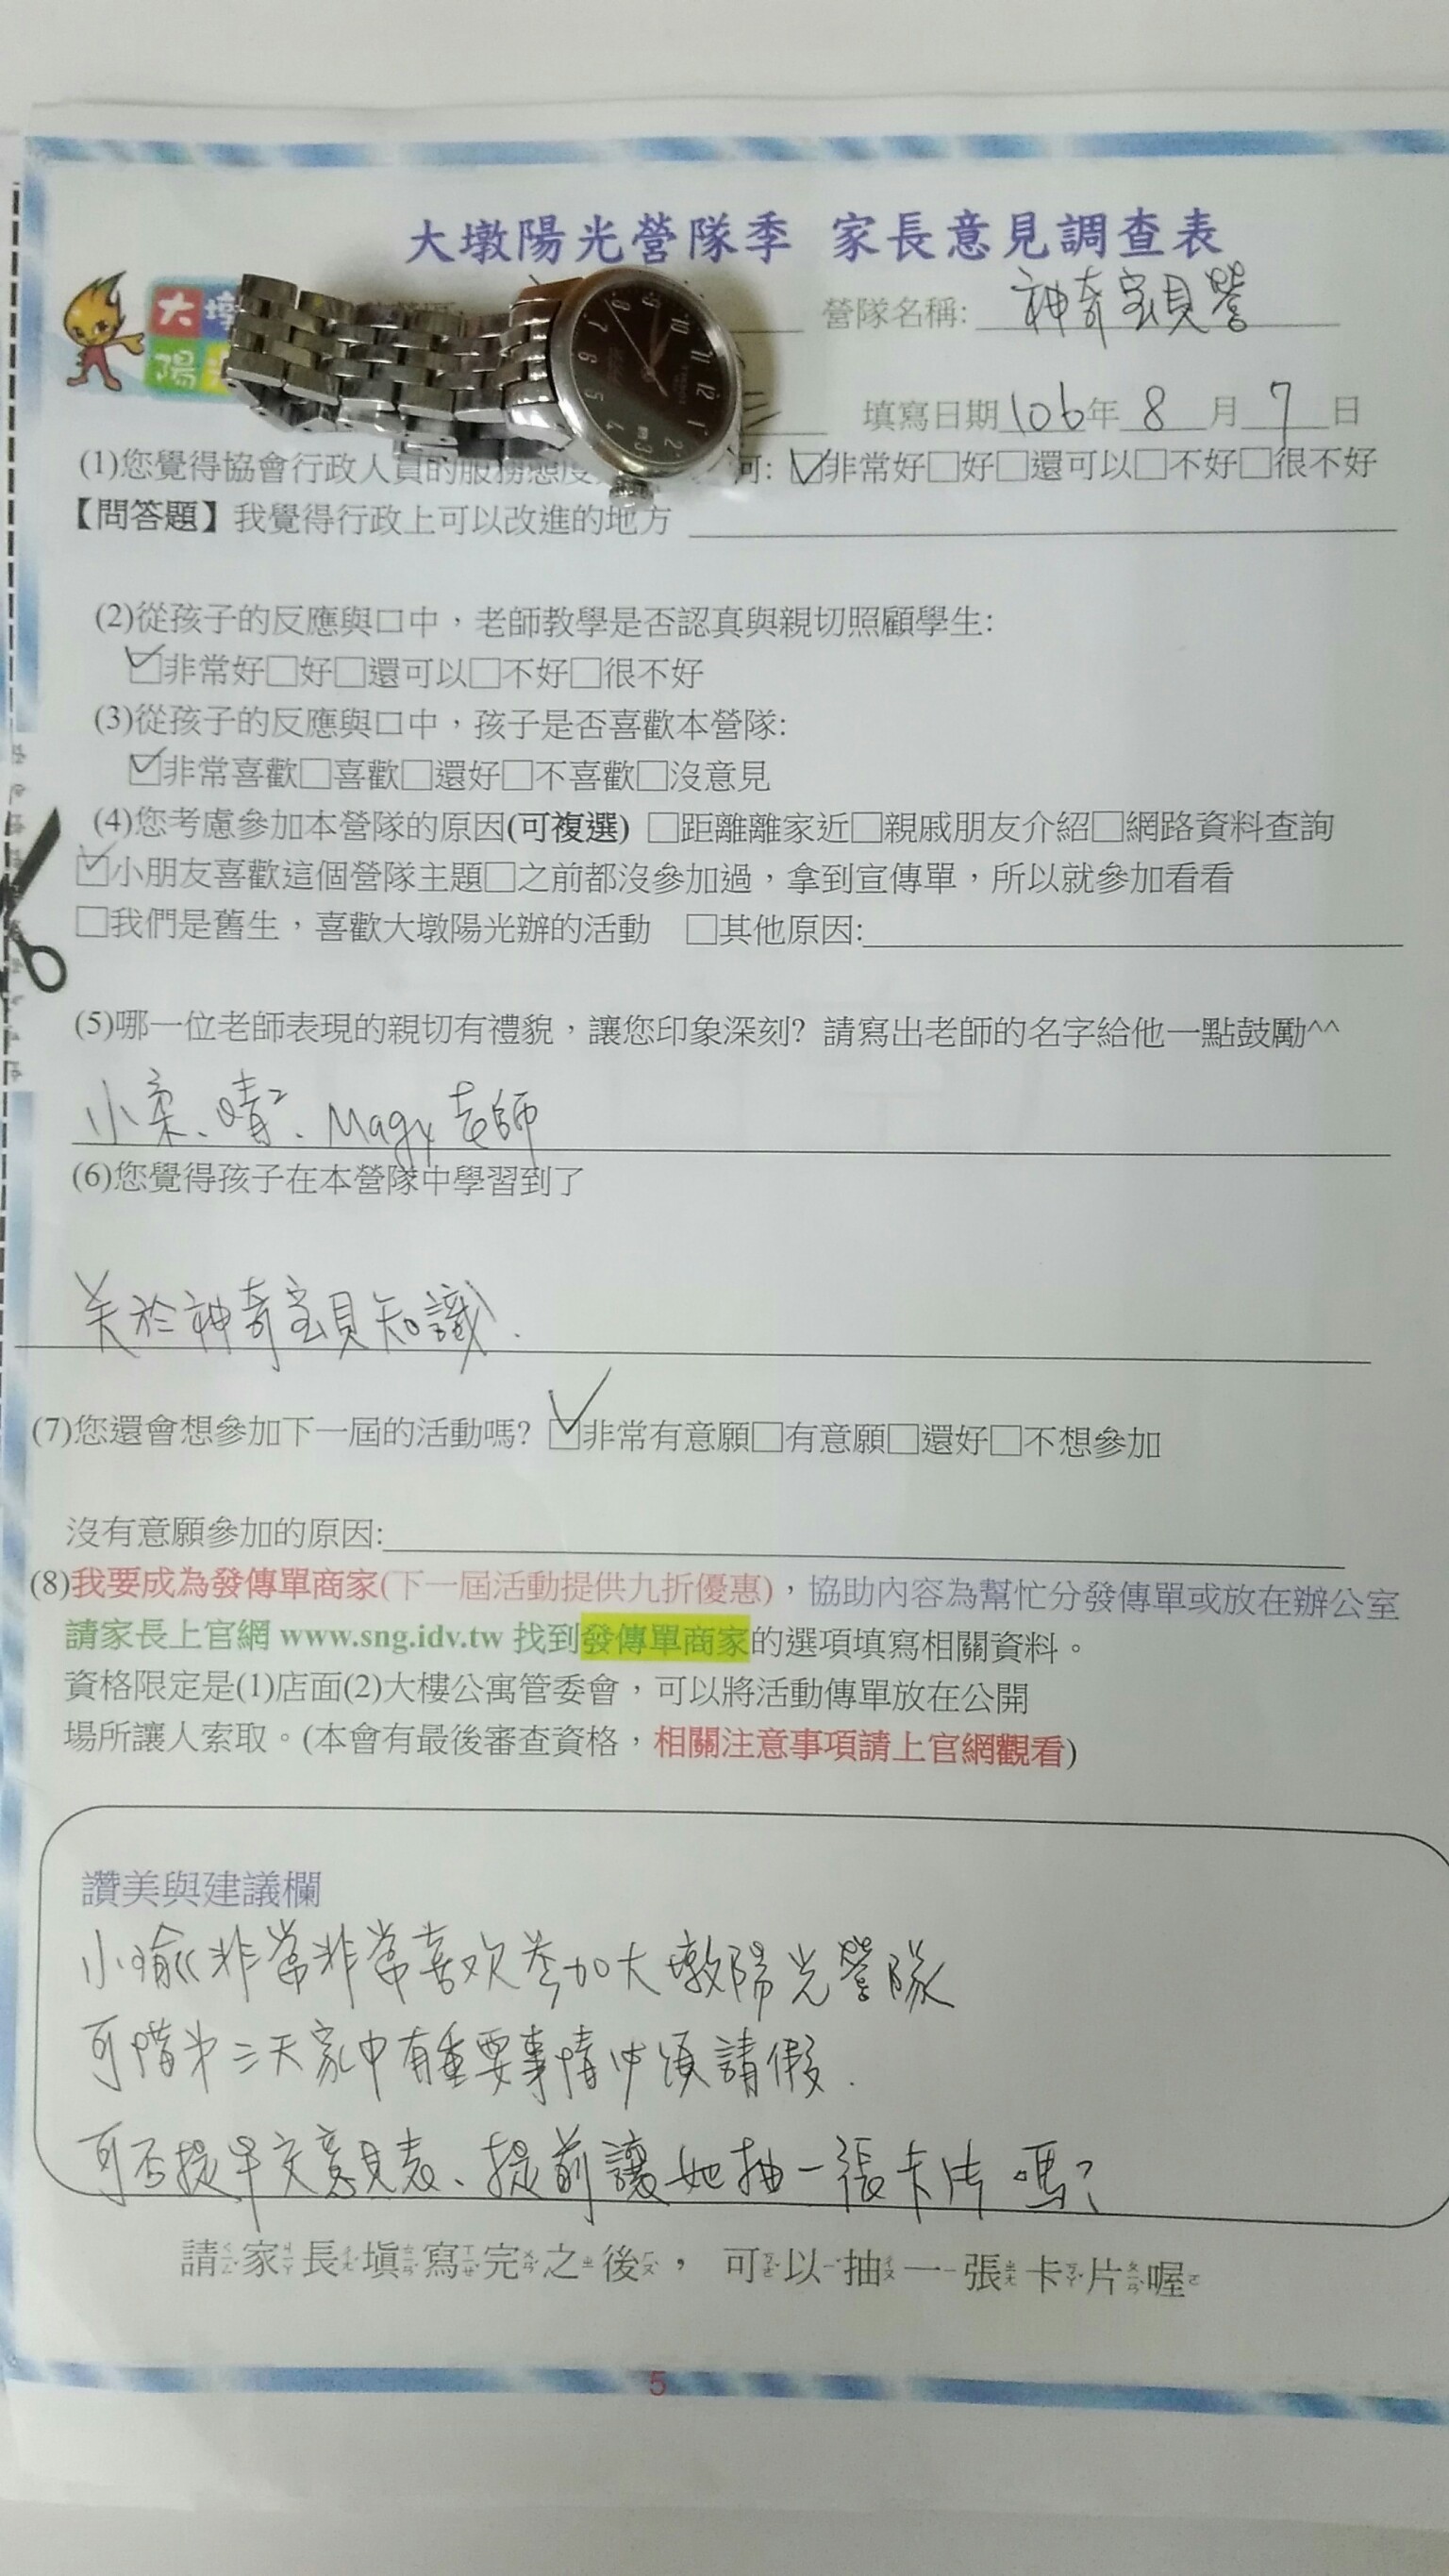 大墩陽光營隊季 家長意見調查表
大墩
陽
營隊名稱: 神奇宝貝營
填寫日期 106 年 8 月 7 日
(1)您覺得協會行政人員的服務態度 何: ☑非常好□好□還可以□不好□很不好
【問答題】我覺得行政上可以改進的地方
(2)從孩子的反應與口中，老師教學是否認真與親切照顧學生:
☑非常好□好□還可以□不好□很不好
(3)從孩子的反應與口中，孩子是否喜歡本營隊:
☑非常喜歡□喜歡□還好□不喜歡□沒意見
(4)您考慮參加本營隊的原因(可複選) □距離離家近□親戚朋友介紹□網路資料查詢
☑小朋友喜歡這個營隊主題□之前都沒參加過，拿到宣傳單，所以就參加看看
□我們是舊生，喜歡大墩陽光辦的活動 □其他原因:
(5)哪一位老師表現的親切有禮貌，讓您印象深刻? 請寫出老師的名字給他一點鼓勵^^
小柔、晴²、Magy老師
(6)您覺得孩子在本營隊中學習到了
关於神奇宝貝知識.
(7)您還會想參加下一屆的活動嗎? ☑非常有意願□有意願□還好□不想參加
沒有意願參加的原因:
(8)我要成為發傳單商家(下一屆活動提供九折優惠)，協助內容為幫忙分發傳單或放在辦公室
請家長上官網 www.sng.idv.tw 找到發傳單商家的選項填寫相關資料。
資格限定是(1)店面(2)大樓公寓管委會，可以將活動傳單放在公開
場所讓人索取。(本會有最後審查資格，相關注意事項請上官網觀看)
讚美與建議欄
小瑜非常非常喜欢参加大墩陽光營隊
可惜第三天家中有重要事情必須請假.
可否提早交意見表、提前讓她抽一張卡片嗎?
請家長填寫完之後， 可以抽一張卡片喔
5